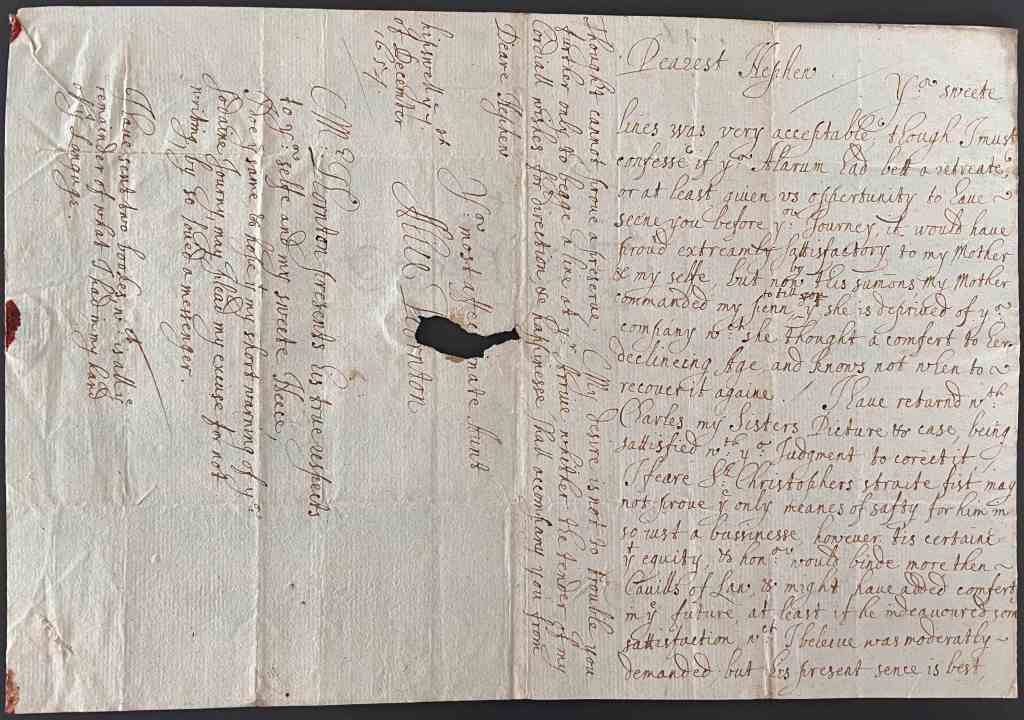 Dearest Nephew
Yor sweete
lines was very acceptable though I must
confesse if yor Alarum had bett a retreate,
or at least giuen vs opportunity to haue
seene you before yor Journey, it would haue
proud extreamly sattisfactory to my Mother
& my selfe, but now by this sumons My Mother
commanded my penn, to tell you yt she is depriued of yor
company wch she thought a comfort to her
declineing Age, and knows not when to
recouer it againe. I haue returnd wth
Charles my Sisters Picture & case, being
sattisfied wth yor Judgment to corect it
I feare Sr Christophers straite fist may
not proue ye only meanes of safty for him in
so iust a bussinesse, however tis certaine
yt equity, & honor would binde more then
Cauills of Law & might haue added comfort
in ye future, at least if he indeauoured som
sattisfaction wch I beleiue was moderatly
demanded but his present sence is best,
though't cannot proue a preserue. My desire is not to trouble you
further only to begge a line at yor arriue whither the tender of my
Cordiall wishes for direction & happinesse shall accompany you from
Deare Nephew
hipswell ye 1st
of December
1654
Yor most affec nate Aunt
Alice Thornton
Mr Thornton presents his true respects
to yor selfe and my sweete Neece,
ye same & hope yt my short warning of yor
sodaine Journy may plead my excuse for not
writing, by so loued a messenger.
I haue sent two bookes wch is all ye
remainder of what I had in my hand
of my Language.